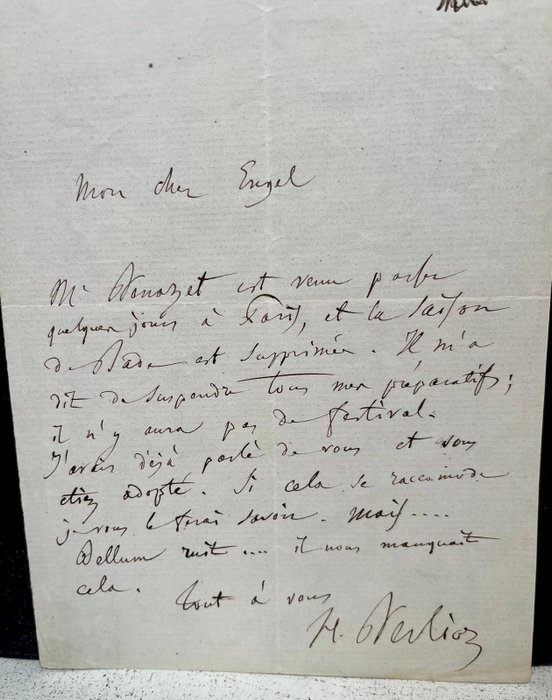 Mon cher Engel
Mr Benazet est venu passer
quelques jours à Paris, et la saison
de Bade est supprimée. Il m'a
dit de suspendre tous mes préparatifs;
il n'y aura pas de festival.
J'avais déjà parlé de vous et vous
étiez adopté. Si cela se raccomode
je vous le ferai savoir. Mais....
Bellum ruit .... il nous manquait
cela.
Tout à vous
H. Berlioz